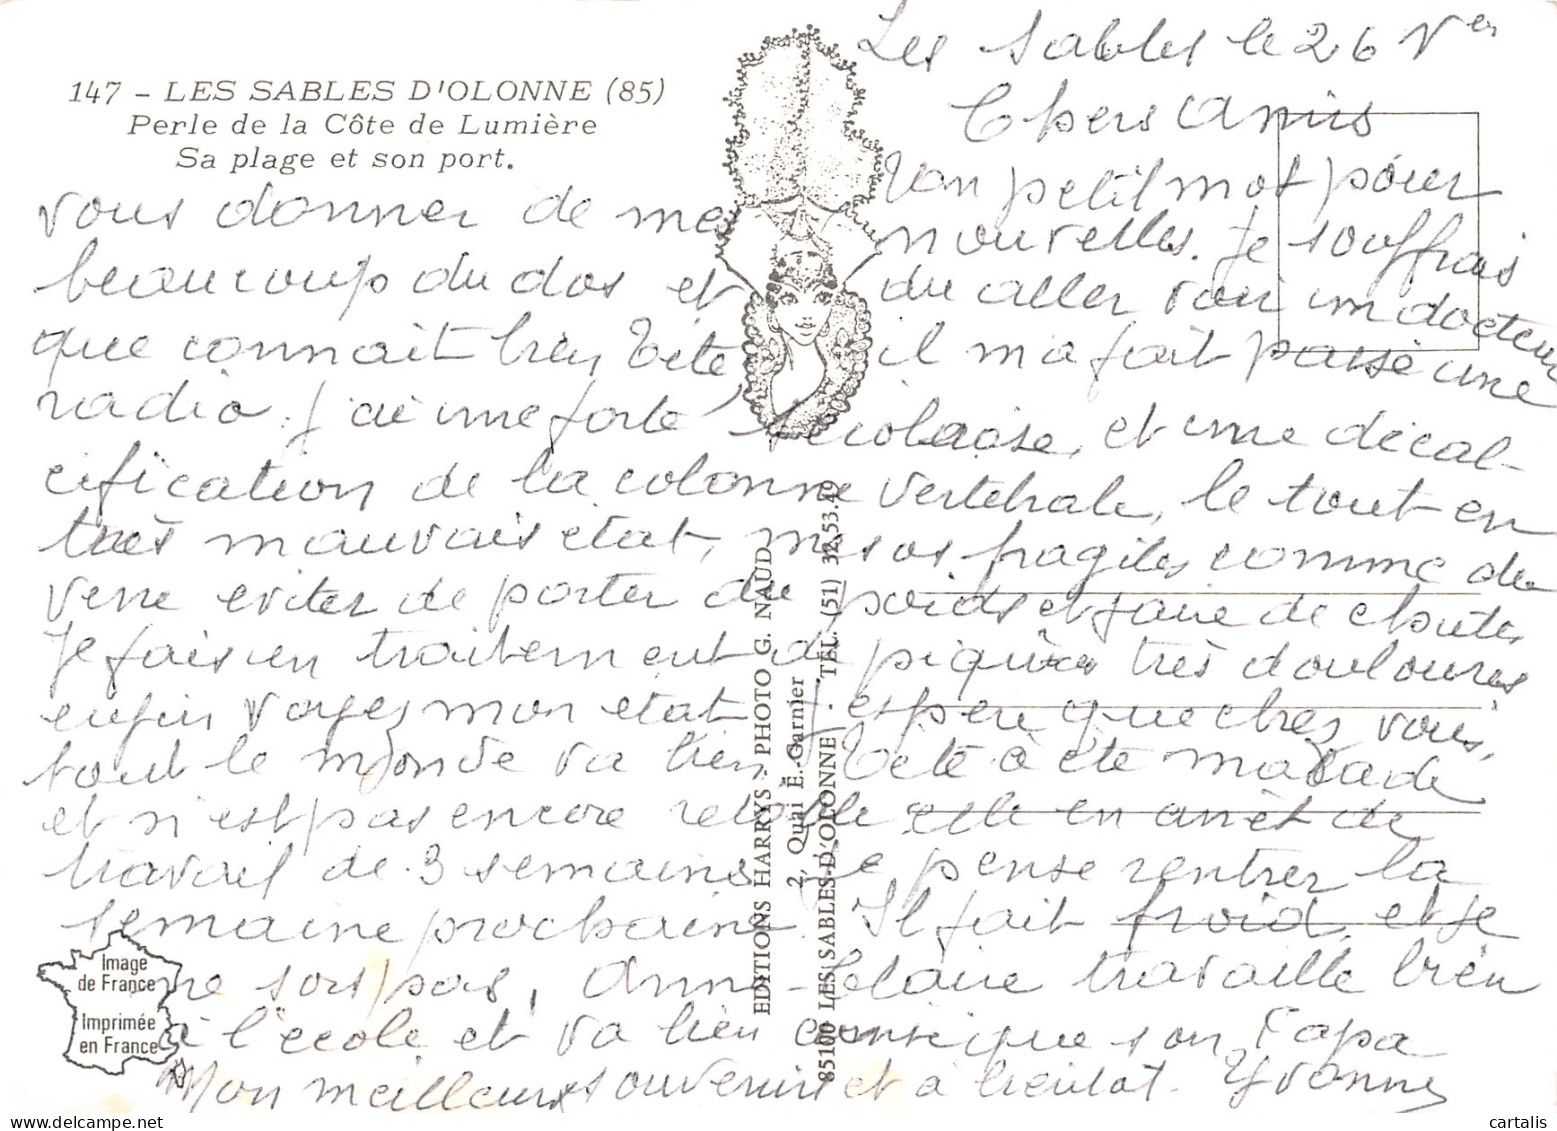 147 - LES SABLES D'OLONNE (85)
Perle de la Côte de Lumière
Sa plage et son port.
Les Sables le 26 Ver
Chers Amis
Un petit mot pour
vous donner de mes nouvelles. Je souffrais
beaucoup du dos et du aller voir un docteur
que connait bien Tété, il m'a fait passé une
radio. J'ai une forte scoliose, et une décal-
cification de la colonne vertébrale, le tout en
très mauvais état, mes os fragiles comme du
verre eviter de porter du poids et faire de chutes
Je fais un traitement de piqûres très douloureuses
enfin voyez mon état J'espère que chez vous,
tout le monde va bien, Tété à été malade
et n'est pas encore elle en arrêt de
travail de 3 semaines. Je pense rentrer la
semaine prochaine. Il fait froid, et je
ne sors pas, Anne-Claire travaille bien
à l'école et va bien que son Papa
Mon meilleurs souvenirs et à bientot. Yvonne
EDITIONS HARRYS - PHOTO G. NAUD
2, Quai E. Garnier
85100 LES SABLES-D'OLONNE - TÉL. (51) 32.53.49
Image
de France
Imprimée
en France
www.cartalis.com
cartalis